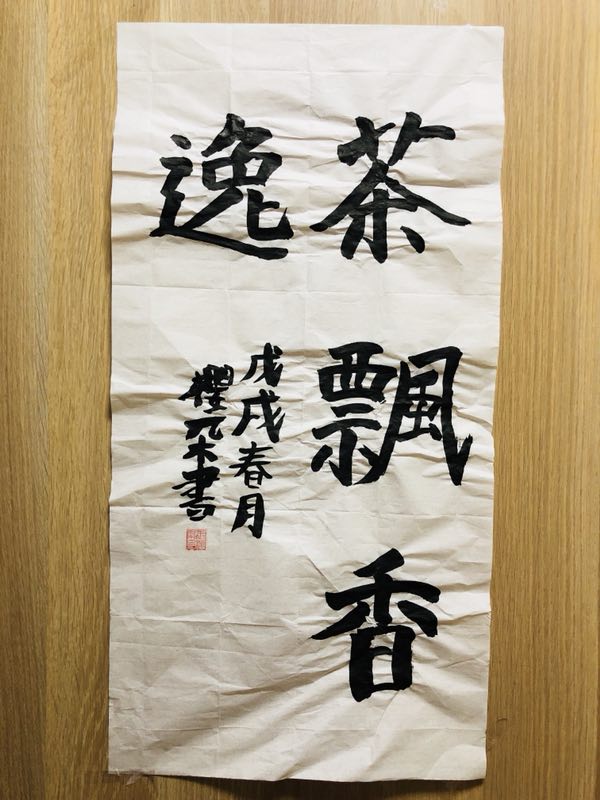 茶飄香
逸
戊戌春月
櫻朵書